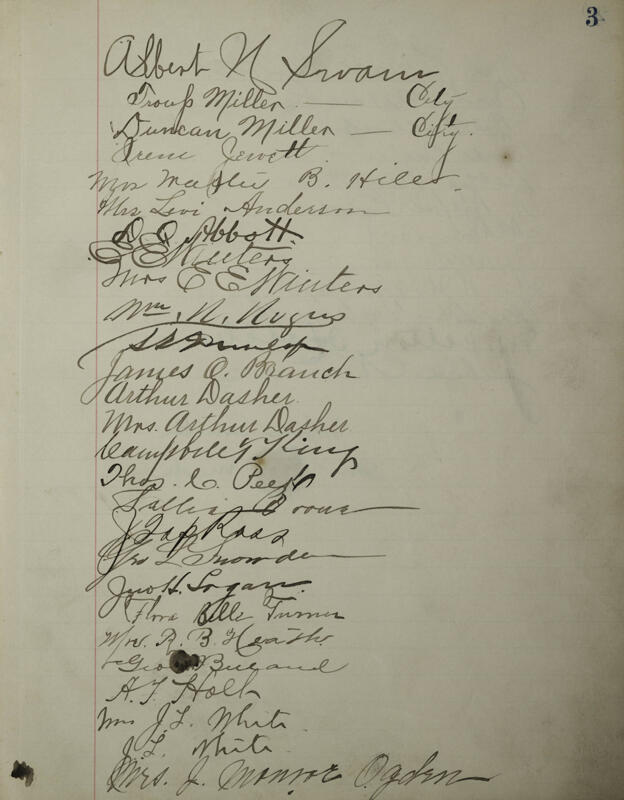 3
Albert N Swann
Troup Miller — City
Duncan Miller — City.
Irene Jewett
Mrs B. Hiles
Mrs Levi Anderson
D. C. Abbott.
E E Winters
Mrs E E Winters
Wm. N.
James O. Branch
Arthur Dasher
Mrs. Arthur Dasher
Campbell King
Thos. C.
Sallie Boone
Ross
Geo L Snowden
Jno H. Logan.
Flora Belle Turner
Mrs. R. B. Heath.
Geo
A. T. Holt
Mrs J. L. White
J. L. White
Mrs. J. Monroe Ogden